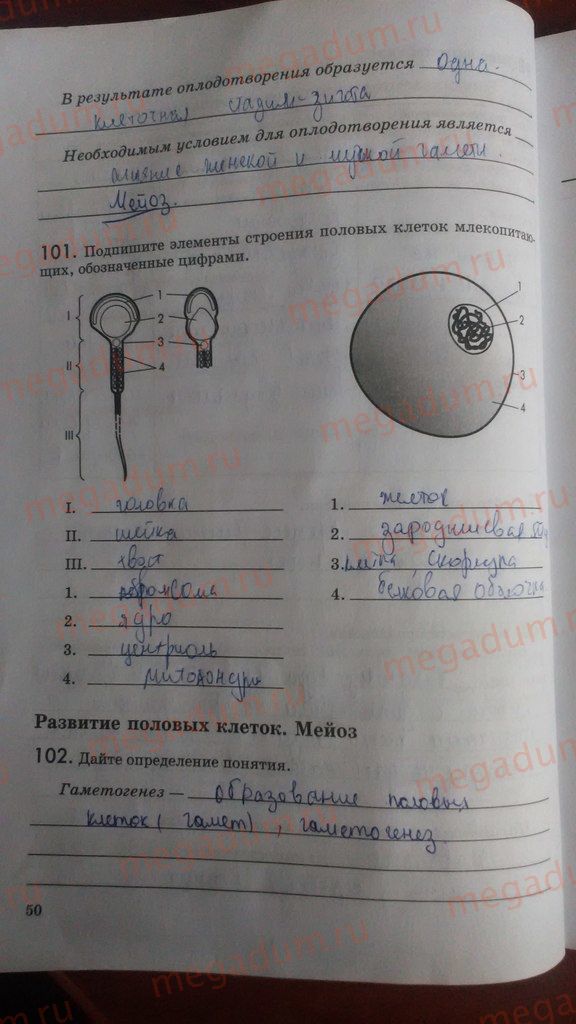 В результате оплодотворения образуется одна
клеточная стадия-зигота
Необходимым условием для оплодотворения является
слияние женской и мужской гаметы.
Мейоз.
101. Подпишите элементы строения половых клеток млекопитаю-
щих, обозначенные цифрами.
I
II
III
1
2
3
4
1
2
3
4
I. головка
II. шейка
III. хвост
1.
2. ядро
3. центриоль
4.
1. желток
2. зародышевая
3. скорлупа
4. белковая оболочка
Развитие половых клеток. Мейоз
102. Дайте определение понятия.
Гаметогенез — образование половых
клеток ( гамет) , гаметогенез
50
megadum.ru